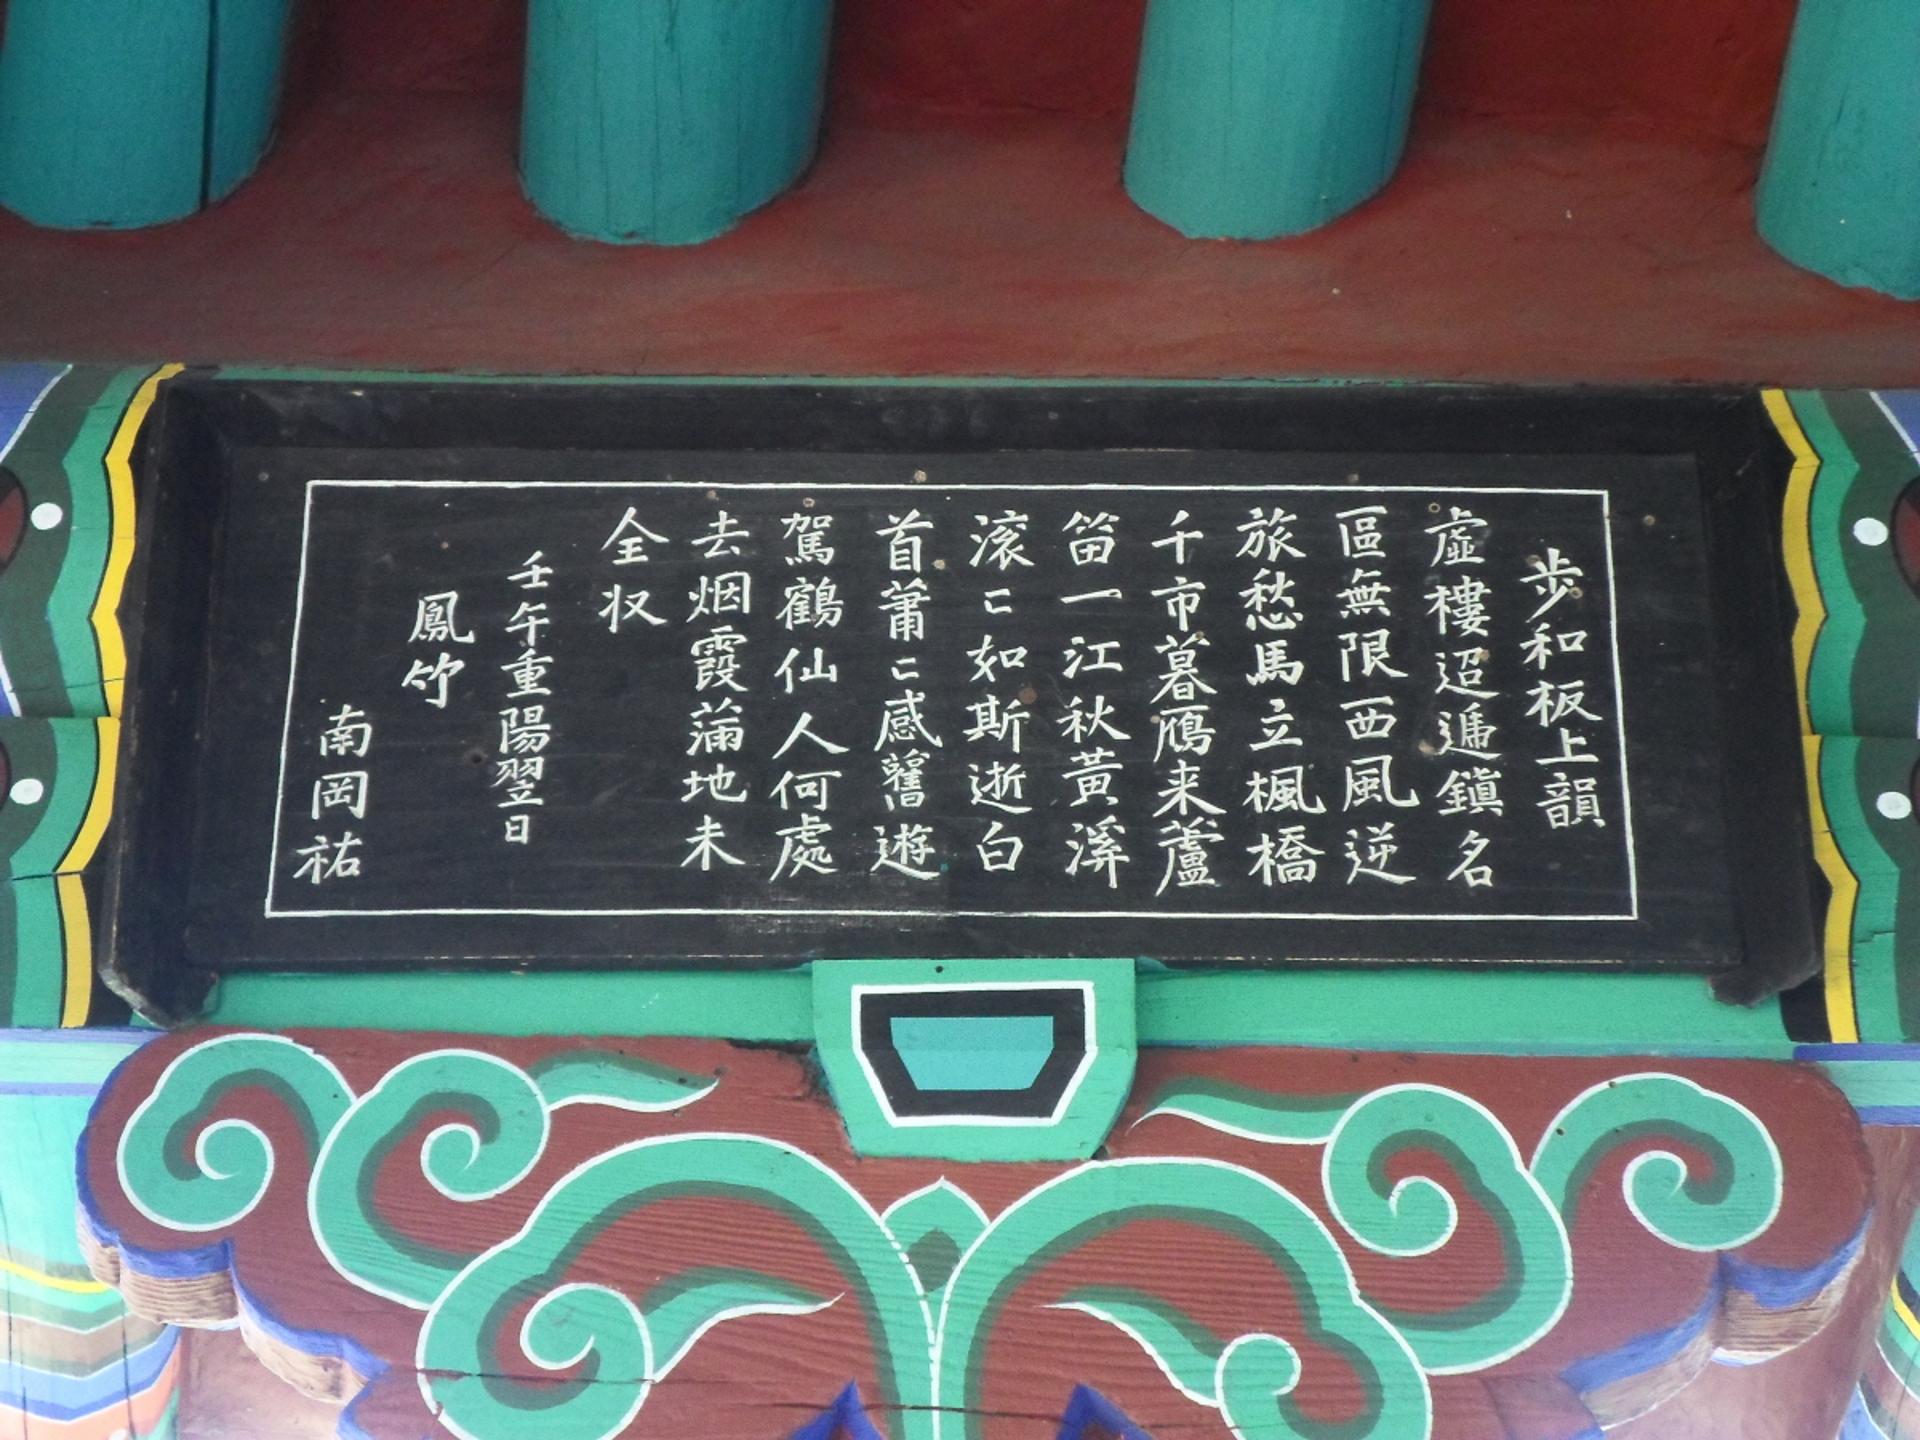 歩和板上韻
虛樓迢遞鎭名
區無限西風逆
旅愁馬立楓橋
千市暮鴈来蘆
笛一江秋黃溪
滚〻如斯逝白
首蕭〻感舊遊
駕鶴仙人何處
去烟霞蒲地未
全収
壬午重陽翌日
鳳竹
南岡祐